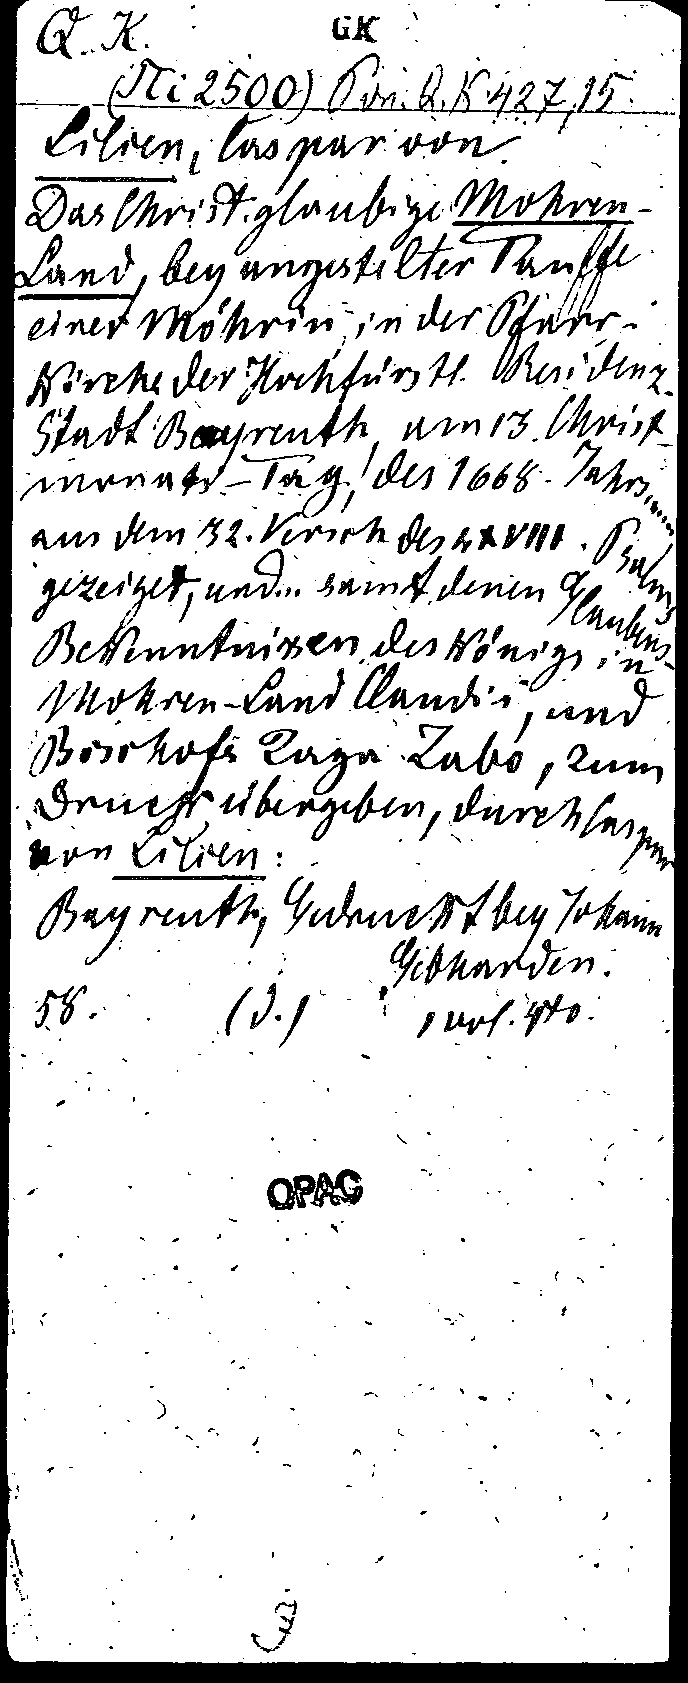 Q. K.
GK
(Ni 2500) Pon. Q. K 427, 15.
Lilien, Caspar von
Das Christ. glaubige Mohren-
Land, bey angestelter Tauffe
einer Möhrin, in der Pfarr-
Kirche der Hochfürstl. Residenz-
Stadt Bayreuth, am 13. Christ-
monats-Tag, des 1668. Jahrs,
aus dem 32. Versch des LXVIII. Psalms
gezeiget, und... samt denen Glaubens-
Bekenntnissen des Königs in
Mohren-Land Claudii, und
Bischofs Zaga Zabo, zum
Druck übergeben, durch Caspar
von Lilien:
Bayreuth, Gedruckt bey Johann
Gebharden.
58. (d.) 1 vol. 4to.
OPAC